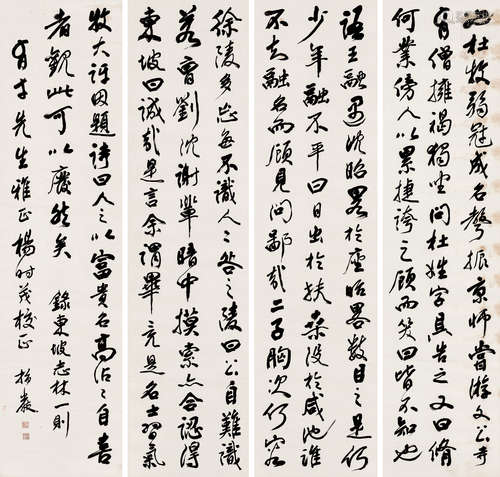 杜牧弱冠成名聲振京師嘗游文公寺
有僧擁褐獨坐問杜姓字具告之又曰脩
何業傍人以累捷誇之顧而笑曰皆不知也
王融遇沈昭畧於座昭畧數目之是何
少年融不平曰日出於扶桑沒於咸池誰
不知融名而顧見問鄙哉二子胸次何窄
徐陵多忘每不識人人咎之陵曰公自難識
若曹劉沈謝輩暗中摸索亦合認得
東坡曰誠哉是言余謂畢竟是名士習氣
牧大訝因題詩曰人人以富貴名高沾沾自喜
者觀此可以廢然矣 錄東坡志林一則
先生雅正 楊時茂